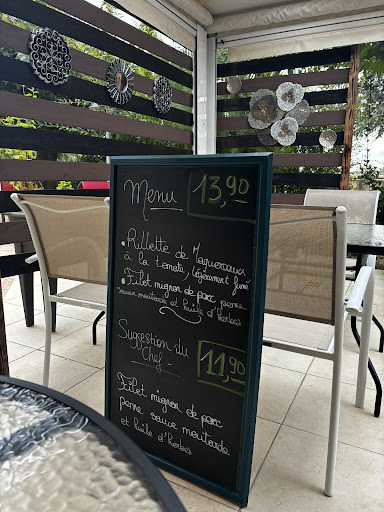 Menu 13,90
• Rillette de Maquereaux
à la tomate, légèrement fumé
• Filet mignon de porc, penne
sauce moutarde et huile d'herbes
Suggestion du
Chef - 11,90
Filet mignon de porc
penne sauce moutarde
et huile d'herbes